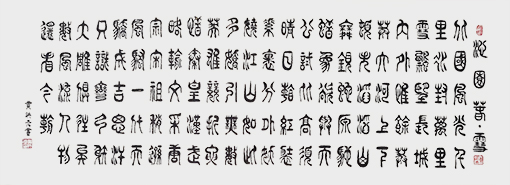 沁園春·雪
北國風光千
里冰封萬里
雪飄望長城
內外惟餘莽
莽大河上下
頓失滔滔山
舞銀蛇原馳
蠟象欲與天
公試比高須
晴日看紅裝
素裹分外妖
嬈江山如此
多嬌引無數
英雄競折腰
惜秦皇漢武
略輸文采唐
宗宋祖稍遜
風騷一代天
驕成吉思汗
只識彎弓射
大雕俱往矣
數風流人物
還看今朝